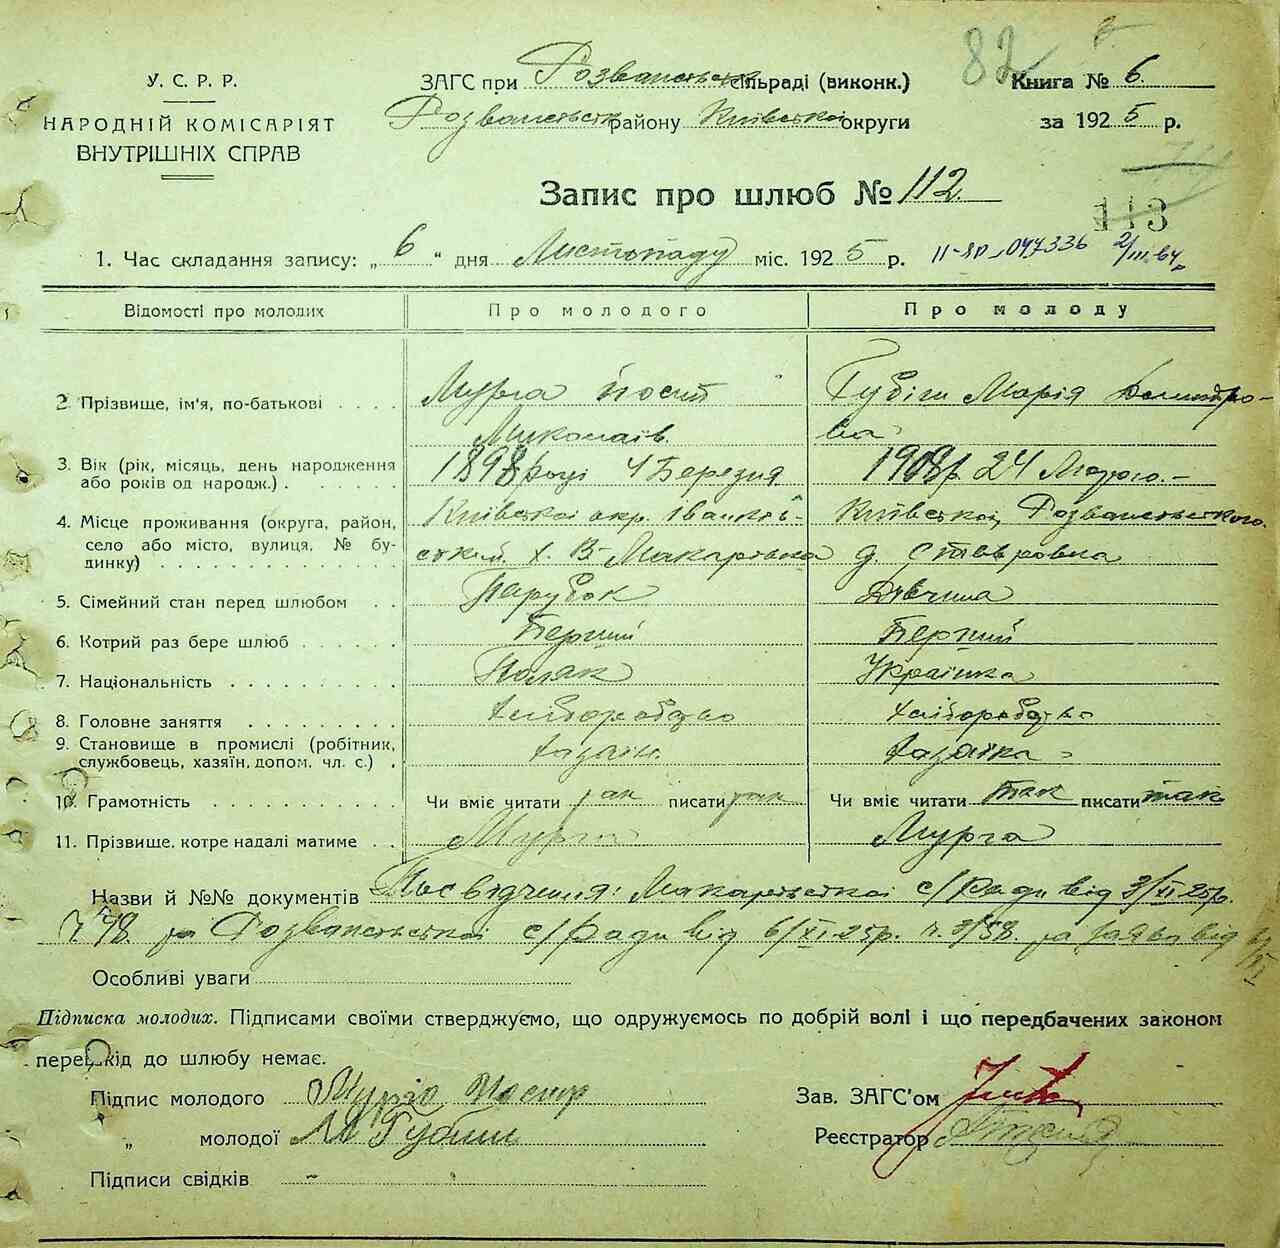 82
У. С. Р. Р.
НАРОДНІЙ КОМІСАРІЯТ
ВНУТРІШНІХ СПРАВ
ЗАГС при Розважевськ сільраді (виконк.)
Книга № 6
Розважевськ району Київської округи
за 1925 р.
Запис про шлюб № 112.
113
1. Час складання запису: „ 6 " дня Листопаду міс. 1925 р. 11-ЯР 047336 2/III.64р
Відомості про молодих
Про молодого
Про молоду
2 Прізвище, ім'я, по-батькові . . . .
Мурга Йосип Миколаїв.
Губіш Марія Демитрова
3. Вік (рік, місяць, день народження
або років од народж.) .
1898 році 4 Березня
1908р. 24 Лютого.-
4. Місце проживання (округа, район,
село або місто, вулиця, № бу-
динку)
Київської окр. Іванків-
ський х. В-Макарівка
Київської, Розважевського
д. Ставровка
5. Сімейний стан перед шлюбом . .
Парубок
Дівчина
6. Котрий раз бере шлюб
Перший
Перший
7. Національність
Поляк
Українка
8. Головне заняття
хліборобство
хліборобство
9. Становище в промислі (робітник,
службовець, хазяїн, допом. чл. с.) .
хазаїн.
хазаїка
10. Грамотність
Чи вміє читати так писати так
Чи вміє читати так писати так
11. Прізвище, котре надалі матиме . .
Мурга
Мурга
Назви й №№ документів Посвідчення: Макарівської с/ради від 3/XI 25р.
Ч 78. та Розважевської с/ради від 6/XI 25р. ч. 3/58. та заява від 6/XI
Особливі уваги
Підписка молодих. Підписами своїми стверджуємо, що одружуємось по добрій волі і що передбачених законом
перешкід до шлюбу немає.
Підпис молодого Мурга
Зав. ЗАГС'ом
„ молодої М Губіш
Реєстратор
Підписи свідків -